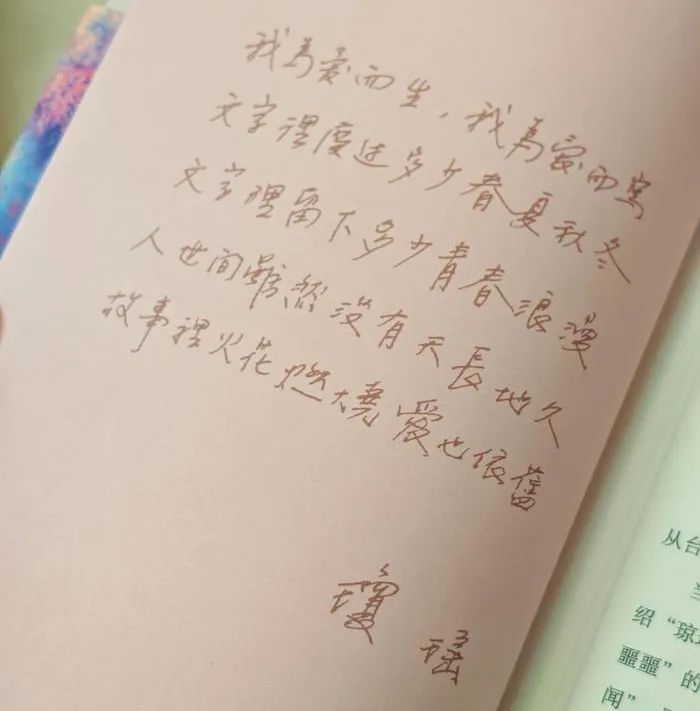 我為愛而生，我為愛而寫
文字裡度过多少春夏秋冬
文字裡留下多少青春浪漫
人世間雖然沒有天長地久
故事裡火花燃燒愛也依舊
瓊瑤
从台
当
绍“琼瑶
噩噩”的
闻”